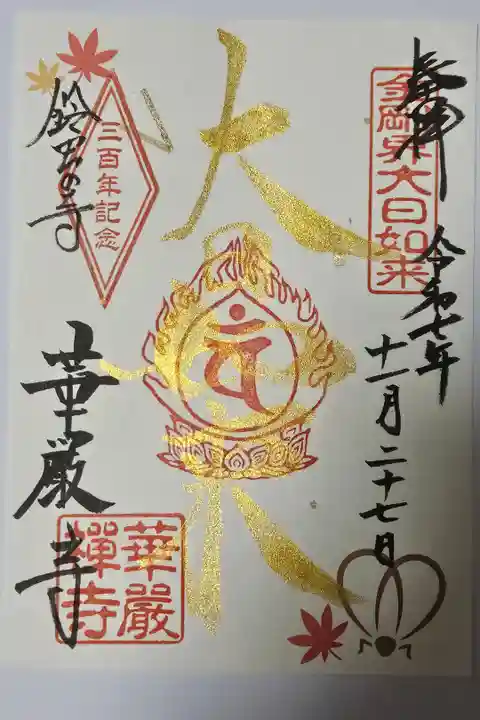 奉拝
金剛界大日如来
令和七年
十一月二十七日
大日如来
三百年記念
鈴虫の寺
華厳寺
華嚴
禪寺